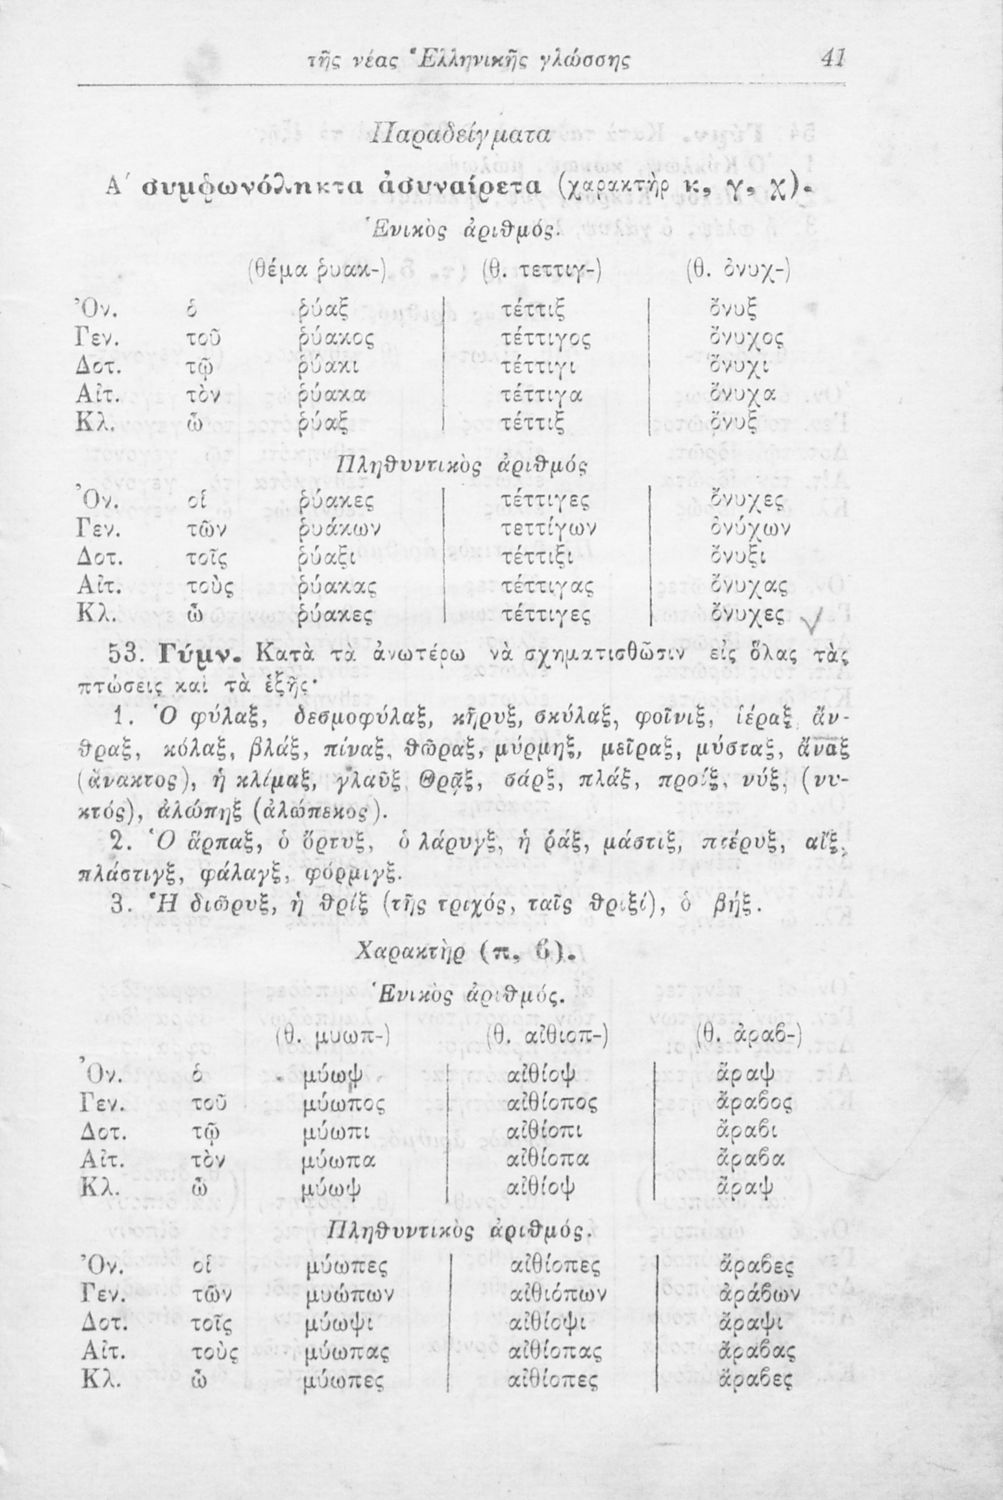 τῆς νέας Ἑλληνικῆς γλώσσης 41
Παραδείγματα
Α΄ συμφωνόληκτα ἀσυναίρετα (χαρακτὴρ κ, γ, χ).
Ἑνικὸς ἀριθμός.
(θέμα ῥυακ-) (θ. τεττιγ-) (θ. ὀνυχ-)
Ὀν. ὁ ῥύαξ τέττιξ ὄνυξ
Γεν. τοῦ ῥύακος τέττιγος ὄνυχος
Δοτ. τῷ ῥύακι τέττιγι ὄνυχι
Αἰτ. τὸν ῥύακα τέττιγα ὄνυχα
Κλ. ὦ ῥύαξ τέττιξ ὄνυξ
Πληθυντικὸς ἀριθμός
Ὀν. οἱ ῥύακες τέττιγες ὄνυχες
Γεν. τῶν ρυάκων τεττίγων ὀνύχων
Δοτ. τοῖς ῥύαξι τέττιξι ὄνυξι
Αἰτ. τοὺς ῥύακας τέττιγας ὄνυχας
Κλ. ὦ ῥύακες τέττιγες ὄνυχες
53. Γύμν. Κατὰ τὰ ἀνωτέρω νὰ σχηματισθῶσιν εἰς ὅλας τὰς
πτώσεις καὶ τὰ ἑξῆς·
1. Ὁ φύλαξ, δεσμοφύλαξ, κῆρυξ, σκύλαξ, φοῖνιξ, ἱέραξ, ἄν-
θραξ, κόλαξ, βλάξ, πίναξ, θῶραξ, μύρμηξ, μεῖραξ, μύσταξ, ἄναξ
(ἄνακτος), ἡ κλίμαξ, γλαῦξ, Θρᾷξ, σάρξ, πλάξ, προίξ, νύξ, (νυ-
κτός), ἀλώπηξ (ἀλώπεκος).
2. Ὁ ἅρπαξ, ὁ ὄρτυξ, ὁ λάρυγξ, ἡ ῥάξ, μάστιξ, πτέρυξ, αἴξ,
πλάστιγξ, φάλαγξ, φόρμιγξ.
3. Ἡ διῶρυξ, ἡ θρίξ (τῆς τριχός, ταῖς θριξί), ὁ βήξ.
Χαρακτὴρ (π, β).
Ἑνικὸς ἀριθμός.
(θ. μυωπ-) (θ. αἰθιοπ-) (θ. ἀραβ-)
Ὀν. ὁ μύωψ αἰθίοψ ἄραψ
Γεν. τοῦ μύωπος αἰθίοπος ἄραβος
Δοτ. τῷ μύωπι αἰθίοπι ἄραβι
Αἰτ. τὸν μύωπα αἰθίοπα ἄραβα
Κλ. ὦ μύωψ αἰθίοψ ἄραψ
Πληθυντικὸς ἀριθμός.
Ὀν. οἱ μύωπες αἰθίοπες ἄραβες
Γεν. τῶν μυώπων αἰθιόπων ἀράβων
Δοτ. τοῖς μύωψι αἰθίοψι ἄραψι
Αἰτ. τοὺς μύωπας αἰθίοπας ἄραβας
Κλ. ὦ μύωπες αἰθίοπες ἄραβες